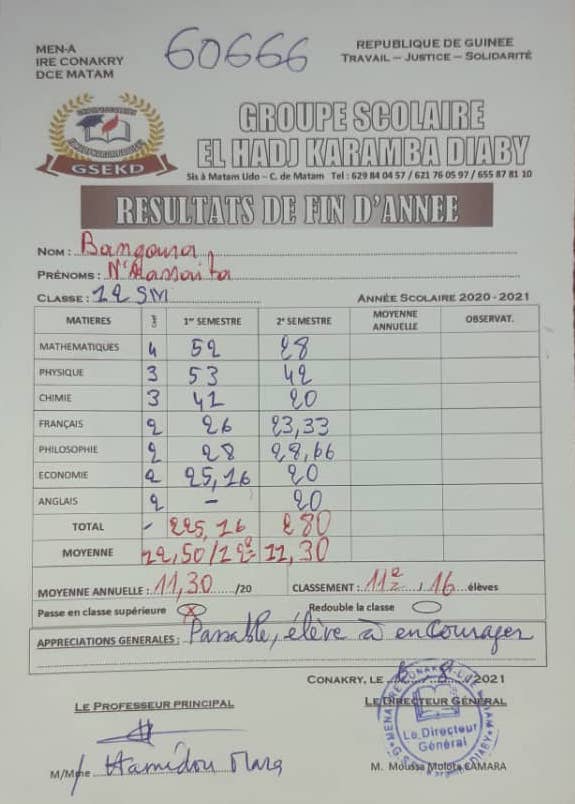 60666
MEN-A
IRE CONAKRY
DCE MATAM
REPUBLIQUE DE GUINEE
TRAVAIL – JUSTICE – SOLIDARITÉ
GSEKD
GROUPE SCOLAIRE
EL HADJ KARAMBA DIABY
Sis à Matam Udo – C. de Matam Tel : 629 84 04 57 / 621 76 05 97 / 655 87 81 10
RESULTATS DE FIN D'ANNEE
NOM : Bangoura
PRÉNOMS : N'Massaita
CLASSE : 12 SM ANNÉE SCOLAIRE 2020-2021
MATIERES 1er SEMESTRE 2e SEMESTRE MOYENNE ANNUELLE OBSERVAT.
MATHEMATIQUES 4 52 28
PHYSIQUE 3 53 42
CHIMIE 3 41 20
FRANÇAIS 2 26 23,33
PHILOSOPHIE 2 28 28,66
ECONOMIE 2 25,16 20
ANGLAIS 2 – 20
TOTAL - 225,16 280
MOYENNE 12,50 11,30
MOYENNE ANNUELLE : 11,30 /20 CLASSEMENT : 11e / 16 élèves
Passe en classe supérieure X Redouble la classe
APPRECIATIONS GENERALES : Passable, élève à encourager
CONAKRY, LE 8 2021
LE PROFESSEUR PRINCIPAL LE DIRECTEUR GÉNÉRAL
Le Directeur
Général
M/Mme Hamidou Mara M. Moussa Molota CAMARA